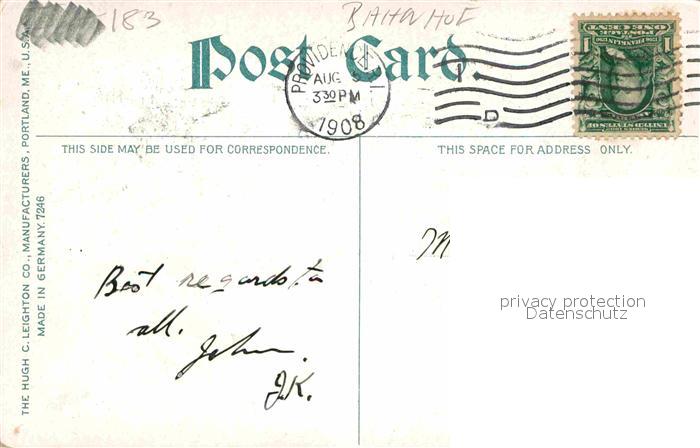 183
BAHNHOF
Post Card.
PROVIDENCE, R.I.
AUG 5
3 30 PM
1908
D
THIS SIDE MAY BE USED FOR CORRESPONDENCE.
THIS SPACE FOR ADDRESS ONLY.
THE HUGH C. LEIGHTON CO., MANUFACTURERS, PORTLAND, ME., U.S.A.
MADE IN GERMANY. 7246
Best regards to
all.
John.
J.K.
M
privacy protection
Datenschutz